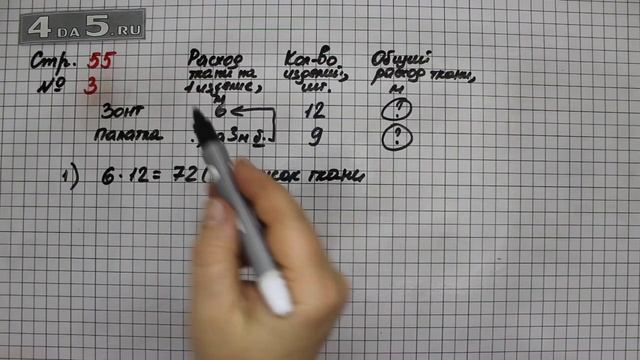 4 DA 5.RU
Стр. 55 Расход Кол-во Общий
№ 3 ткани на изделий, расход ткани,
1 изделие, шт. м
м
Зонт 6 12 ?
Палатка 3 м б. 9 ?
1) 6 · 12 = 72 ( ткани